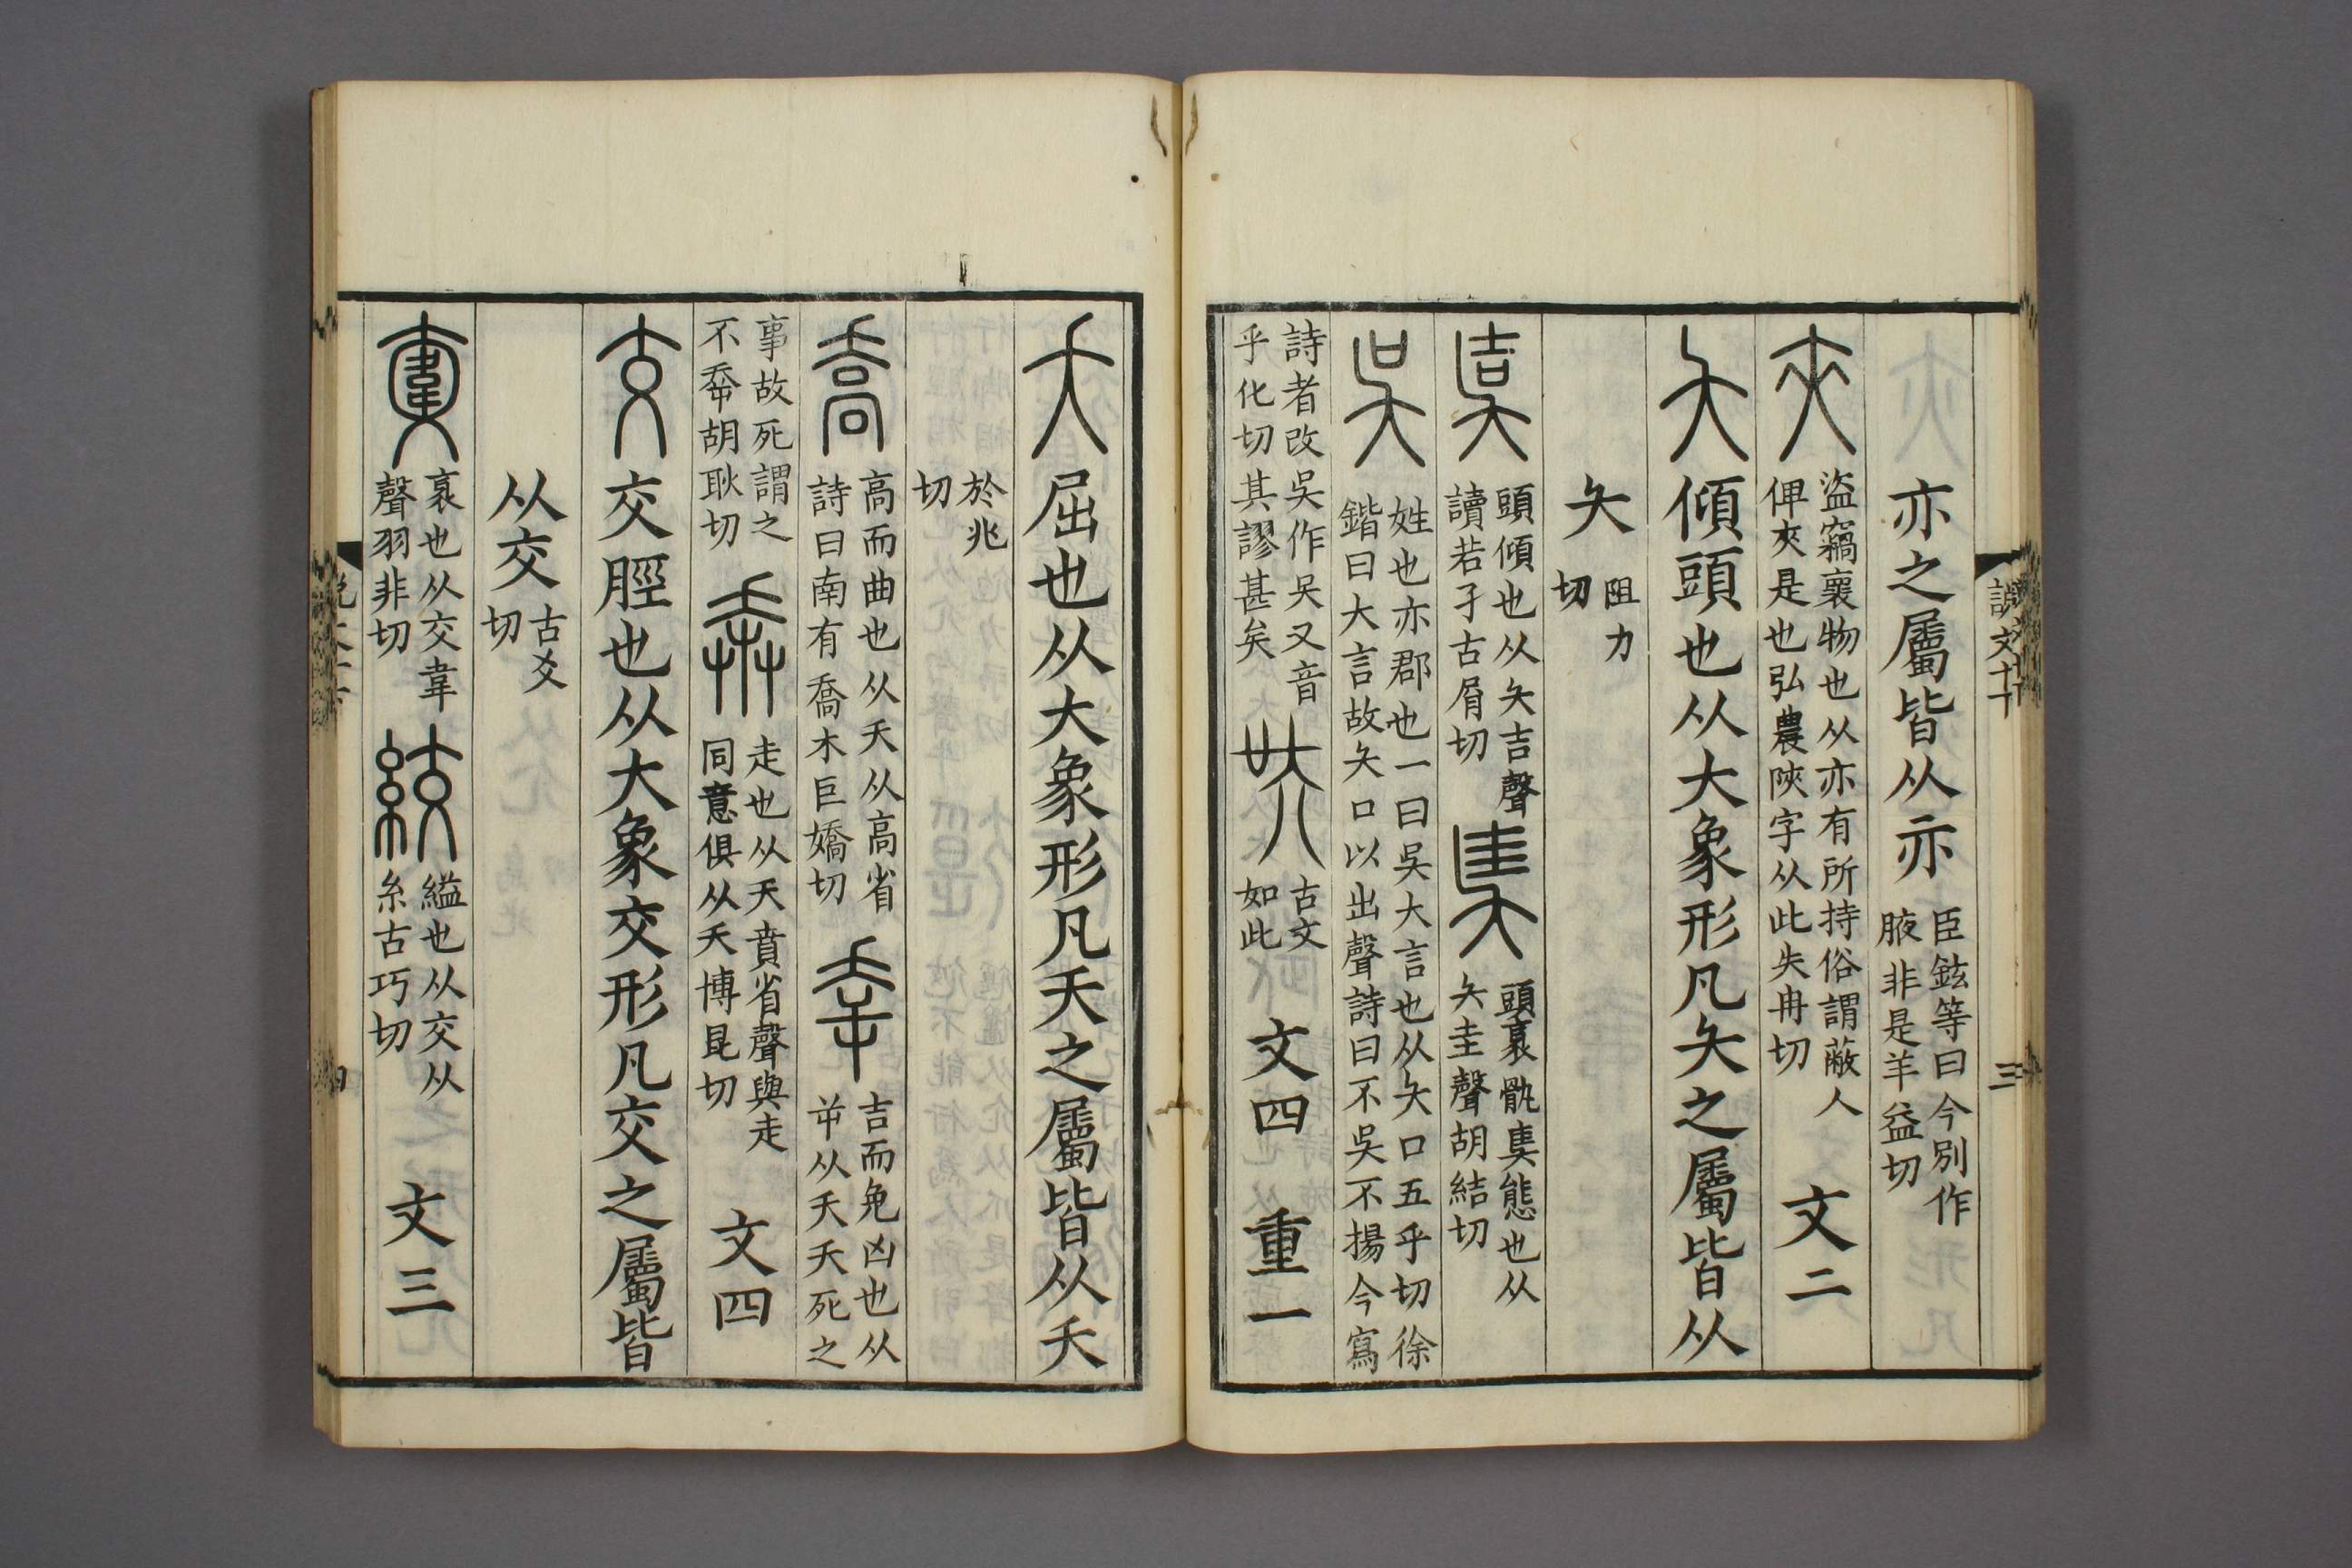 亦之屬皆从亦 臣鉉等曰今別作腋非是羊益切
夾 盜竊褱物也从亦有所持俗謂蔽人俾夾是也弘農陝字从此失冉切 文二
夨 傾頭也从大象形凡夨之屬皆从
夨 阻力切
𡗿 頭傾也从夨吉聲讀若孑古屑切 奊 頭衺骫奊態也从夨圭聲胡結切
吳 姓也亦郡也一曰吳大言也从夨口五乎切徐鍇曰大言故夨口以出聲詩曰不吳不揚今寫
詩者改吳作吴又音乎化切其謬甚矣 古文如此 文四 重一
說文十下
三
夭 屈也从大象形凡夭之屬皆从夭
於兆切
喬 高而曲也从夭从高省詩曰南有喬木巨嬌切 㚔 吉而免凶也从屰从夭夭死之
事故死謂之不㚔胡耿切 奔 走也从夭賁省聲與走同意俱从夭博昆切 文四
交 交脛也从大象交形凡交之屬皆
从交 古爻切
𡚈 衺也从交韋聲羽非切 絞 縊也从交从糸古巧切 文三